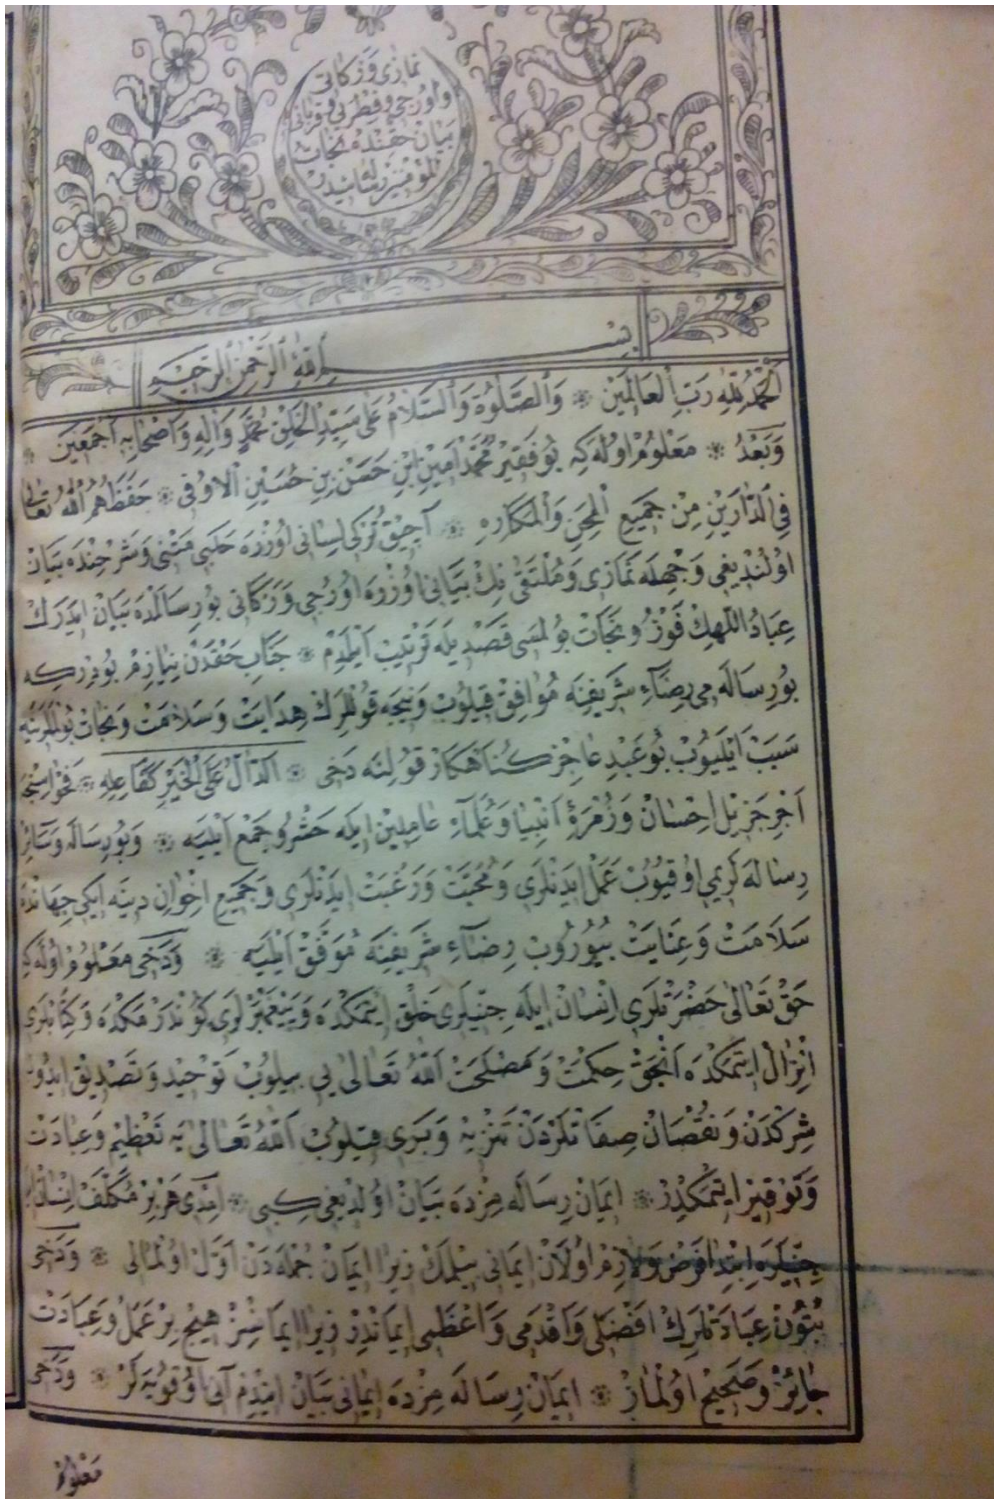 نمازى وزكاتى
واورجى وفطرنى وقربانى
بيان حقنده منجات
المؤمنين رساله سيدر
بسم الله الرحمن الرحيم
اَلْحَمْدُ لِلّٰهِ رَبِّ الْعَالَمِينَ ❋ وَالصَّلٰوةُ وَالسَّلَامُ عَلٰى سَيِّدِ الْخَلْقِ مُحَمَّدٍ وَاٰلِهِ وَاَصْحَابِهِ اَجْمَعِينَ ❋
وَبَعْدُ ❋ مَعْلُومْ اولَه كِه بُو فَقِيرْ مُحَمَّدْ اَمِينِ ابْنِ حَسَنْ بِنِ حُسَيْنِ الاوفى ❋ حَفَظَهُمُ اللّٰهُ تَعَالٰى
فِى الدَّارَيْنِ مِنْ جَمِيعِ الْمِحَنِ وَالْمَكَارِهِ ❋ آچيق تُرْكى لِسَانى اوُزْرَه حَلَبى مَتْنى وَشَرْحِنْدَه بَيَانْ
اوُلُنْديغى وَجْهِلَه نَمَازى وَمُلْتَقٰى نِكْ بَيَانى اوُزْرَه اوُرُجى وَزَكَاتى بُو رِسَالَه‌دَه بَيَانْ ايدَرَكْ
عِبَادُ اللّٰهِكْ فَوْز وُ نَجَاتْ بُولمسى قَصْديلَه تَرْتيبْ اَيْلَدِمْ ❋ جَنَابِ حَقْدَنْ نِيَازِمْ بُودُرْكِه
بُو رِسَالَه مى رِضَاءِ شَرِيفِنَه مُوَافِقْ قيلُوبْ وَنيجَه قوُللرِكْ هِدَايَتْ وَسَلَامَتْ وَنَجَاتْ بُولمَلرينَه
سَبَبْ اَيْلَيُوبْ بُو عَبْدِ عَاجِزْ كُنَاهكَارْ قولنَه دَخى ❋ اَلدَّالُّ عَلَى الْخَيْرِ كَفَاعِلِهِ ❋ فَحْوَاسِنْجَه
اَجْرِ جَزِيلْ اِحْسَانْ وَزُمْرَهٔ اَنْبِيَا وَعُلَمَاءِ عَامِلِينْ ايلَه حَشْر وُ جَمْعْ اَيْلَيَه ❋ وَبُو رِسَالَه وَسَائِرْ
رِسَالَه لَريمى اوُقُيُوبْ عَمَلْ ايدَنْلَرى وَمُحَبَّتْ وَرَغْبَتْ ايدَنْلَرى وَجَميعِ اِخْوَانِ دينَه ايكى جِهَاندَه
سَلَامَتْ وَعِنَايَتْ بُيُورُوبْ رِضَاءِ شَرِيفِنَه مُوَفَّقْ اَيْلَيَه ❋ وَدَخى مَعْلُومْ اوُلَه كِه
حَقْ تَعَالٰى حَضْرَتْلَرى اِنْسَانْ ايلَه جِنّيلَرى خَلْقْ ايتْمَكْدَه وَپَيْغَمْبَرْلَرى كوُنْدَرْمَكْدَه وَكِتَابْلَرى
اِنْزَالْ ايتْمَكْدَه اَنْجَقْ حِكْمَتْ وَمَصْلَحَتْ اللّٰهُ تَعَالٰى يى بيلوُبْ تَوْحِيدْ وَتَصْدِيقْ ايدُوبْ
شِرْكْدَنْ وَنُقْصَانْ صِفَاتْلَرْدَنْ تَنْزِيهْ وَبَرى قيلوُبْ اَللّٰهُ تَعَالٰى يَه تَعْظِيمْ وَعِبَادَتْ
وَتَوْقِيرْ ايتْمَكْدِرْ ❋ ايمَانْ رِسَالَه مِزْدَه بَيَانْ اوُلُنْديغى كِبى ❋ اِمْدى هَرْ بِرْ مُكَلَّفْ اِنْسَانْ
جِنّيلَرَه اِبْتِدَا فَرْضْ وَلَازِمْ اوُلَانْ ايمَانى بيلْمَكْ زيرَا ايمَانْ جُمْلَه دَنْ اَوَّلْ اوُلْمَالى ❋ وَدَخى
بُتُونْ عِبَادَتْلَرِكْ اَفْضَلى وَاَقْدَمى وَاَعْظَمى ايمَانْدِرْ زيرَا ايمَانْسِزْ هيچْ بِرْ عَمَلْ وُ عِبَادَتْ
جَائِزْ وَصَحِيحْ اوُلْمَازْ ❋ ايمَانْ رِسَالَه مِزْدَه ايمَانى بَيَانْ ايتدِمْ آنى اوُقُويَه لَرْ ❋ وَدَخى
مَعْلُومْ